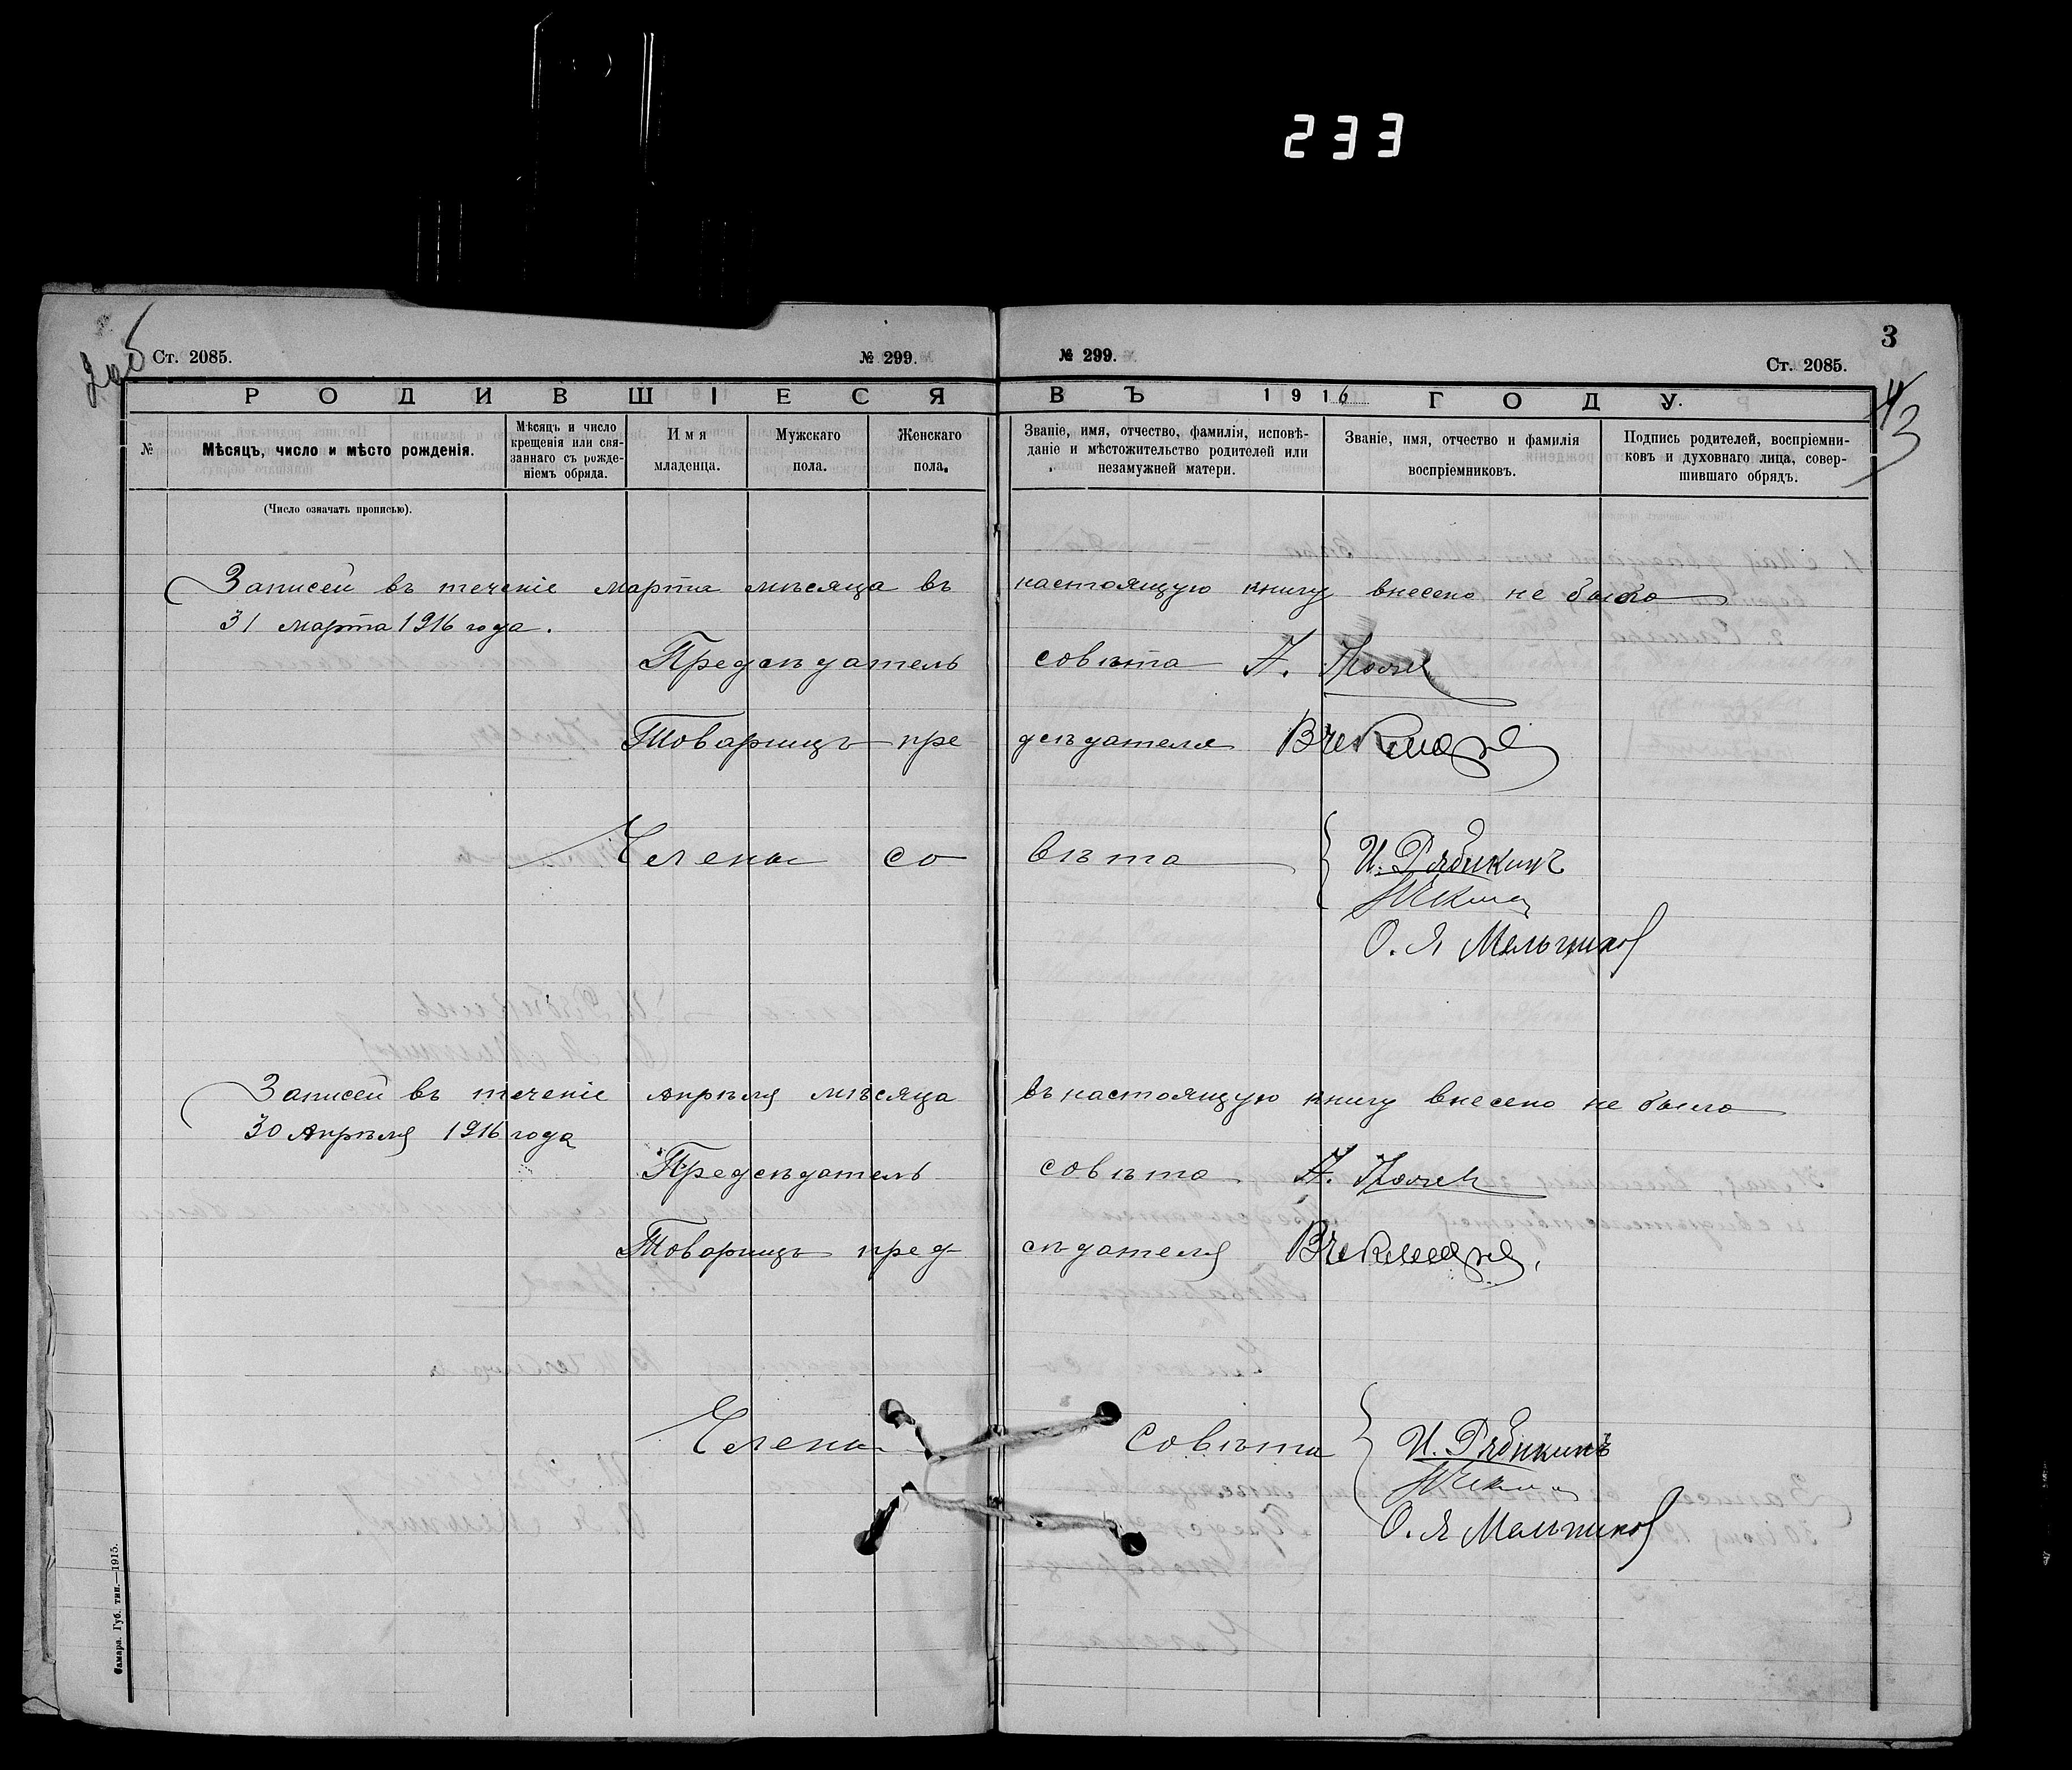 233
3
Ст. 2085.
№ 299.
№ 299.
Ст. 2085.
43
РОДИВШІЕСЯ ВЪ 1916 ГОДУ.
№
Мѣсяцъ, число и мѣсто рожденія.
Мѣсяцъ и число
крещенія или свя-
заннаго съ рожде-
ніемъ обряда.
Имя
младенца.
Мужскаго
пола.
Женскаго
пола.
Званіе, имя, отчество, фамилія, исповѣ-
даніе и мѣстожительство родителей или
незамужней матери.
Званіе, имя, отчество и фамилія
воспріемниковъ.
Подпись родителей, воспріемни-
ковъ и духовнаго лица, совер-
шившаго обрядъ.
(Число означать прописью).
Записей въ теченіе марта мѣсяца въ настоящую книгу внесено не было
31 марта 1916 года.
Предсѣдатель совѣта
Товарищъ предсѣдателя
Члены совѣта И. Рябикинъ
О. Я Мельников
Записей въ теченіе апрѣля мѣсяца въ настоящую книгу внесено не было
30 апрѣля 1916 года
Предсѣдатель совѣта
Товарищъ пред- сѣдателя
Члены совѣта И. Рябикинъ
О. Я Мельников
Самара. Губ. тип.—1915.